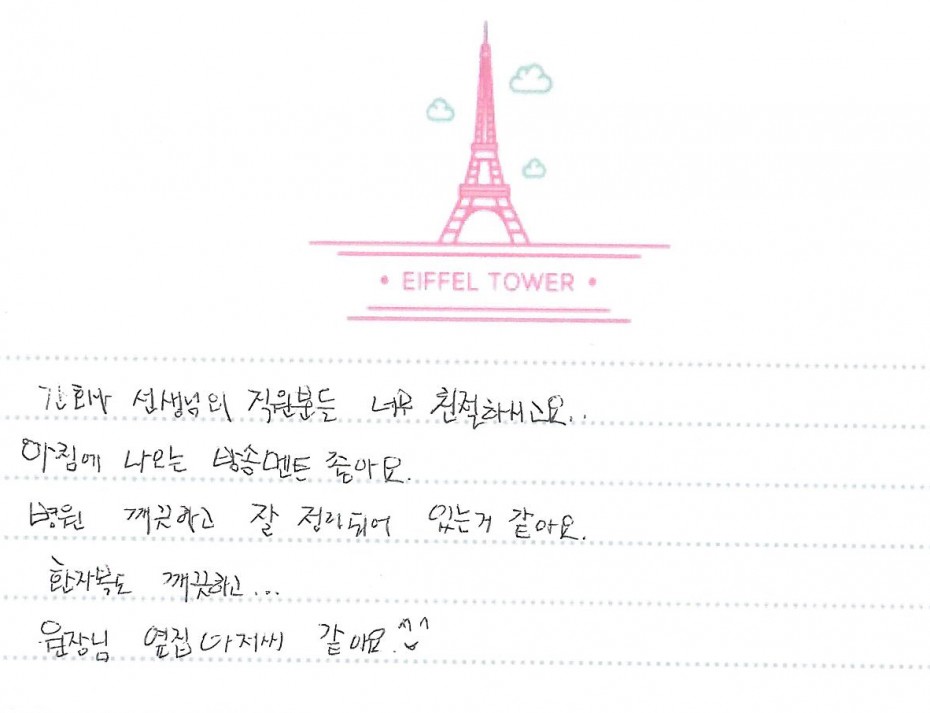 • EIFFEL TOWER •
간호사 선생님외 직원분들 너무 친절하시고요..
아침에 나오는 방송멘트 좋아요.
병원 깨끗하고 잘 정리되어 있는거 같아요.
환자복도 깨끗하고...
원장님 옆집아저씨 같아요.^^